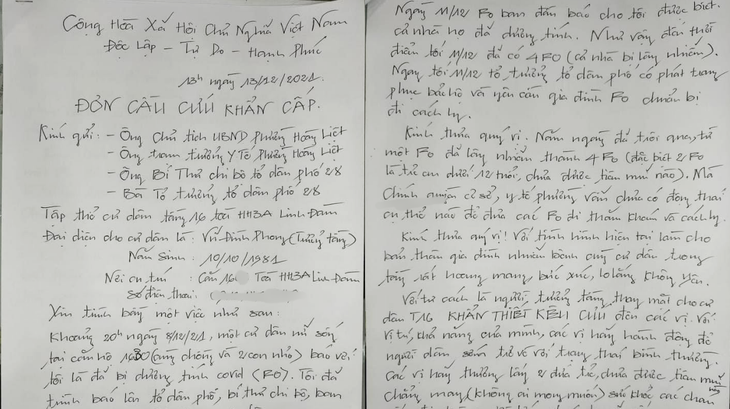 Cộng Hòa Xã Hội Chủ Nghĩa Việt Nam
Độc Lập - Tự Do - Hạnh Phúc
13h ngày 13/12/2021.
ĐƠN CẦU CỨU KHẨN CẤP.
Kính gửi: - Ông Chủ tịch UBND phường Hoàng Liệt
- Ông trạm trưởng Y Tế phường Hoàng Liệt
- Ông Bí Thư chi bộ tổ dân phố 28
- Bà Tổ trưởng tổ dân phố 28
Tập thể cư dân tầng 16 toà HH3A Linh Đàm
Đại diện cho cư dân là: Vũ Đình Phong (Trưởng tầng)
Năm Sinh: 10/10/1981
Nơi cư trú: Căn 16 Toà HH3A Linh Đàm
Số điện thoại:
Xin trình bày một việc như sau:
Khoảng 20h ngày 8/12/21, một cư dân nữ sống
tại căn hộ (cùng chồng và 2 con nhỏ) báo với
tôi là đã bị dương tính covid (F0). Tôi đã
trình báo lên tổ dân phố, bí thư chi bộ, ban
Ngày 11/12 F0 ban đầu báo cho tôi được biết
cả nhà họ đã dương tính. Như vậy đến thời
điểm tối 11/12 đã có 4 F0 (cả nhà bị lây nhiễm).
Ngay tối 11/12 tổ trưởng tổ dân phố có phát trang
phục bảo hộ và yêu cầu gia đình F0 chuẩn bị
đi cách ly.
Kính thưa quý vị. Năm ngày đã trôi qua, từ
một F0 đã lây nhiễm thành 4 F0 (đặc biệt 2 F0
là trẻ em dưới 12 tuổi, chưa được tiêm mũi nào). Mà
chính quyền cơ sở, y tế phường vẫn chưa có động thái
cụ thể nào để đưa các F0 đi thăm khám và cách ly.
Kính thưa quý vị! Với tình hình hiện tại làm cho
bản thân gia đình nhiễm bệnh cùng cư dân trong
tầng rất hoang mang, bức xúc, lo lắng không yên.
Với tư cách là người trưởng tầng thay mặt cho cư
dân T16 KHẨN THIẾT KÊU CỨU đến các vị. Với
vị trí, khả năng của mình, các vị hãy hành động để
người dân sớm trở về với trạng thái bình thường.
Các vị hãy thương lấy 2 đứa trẻ, chưa được tiêm mũi
chẳng may (không ai mong muốn) sức khoẻ các cháu